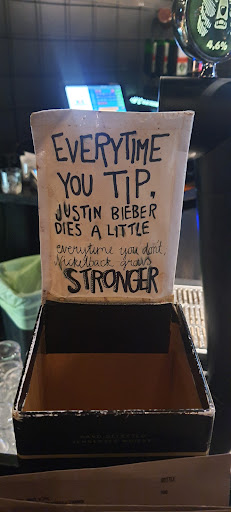 4,6%
EVERYTIME
YOU TIP,
JUSTIN BIEBER
DIES A LITTLE
everytime you don't,
Nickelback grows
STRONGER